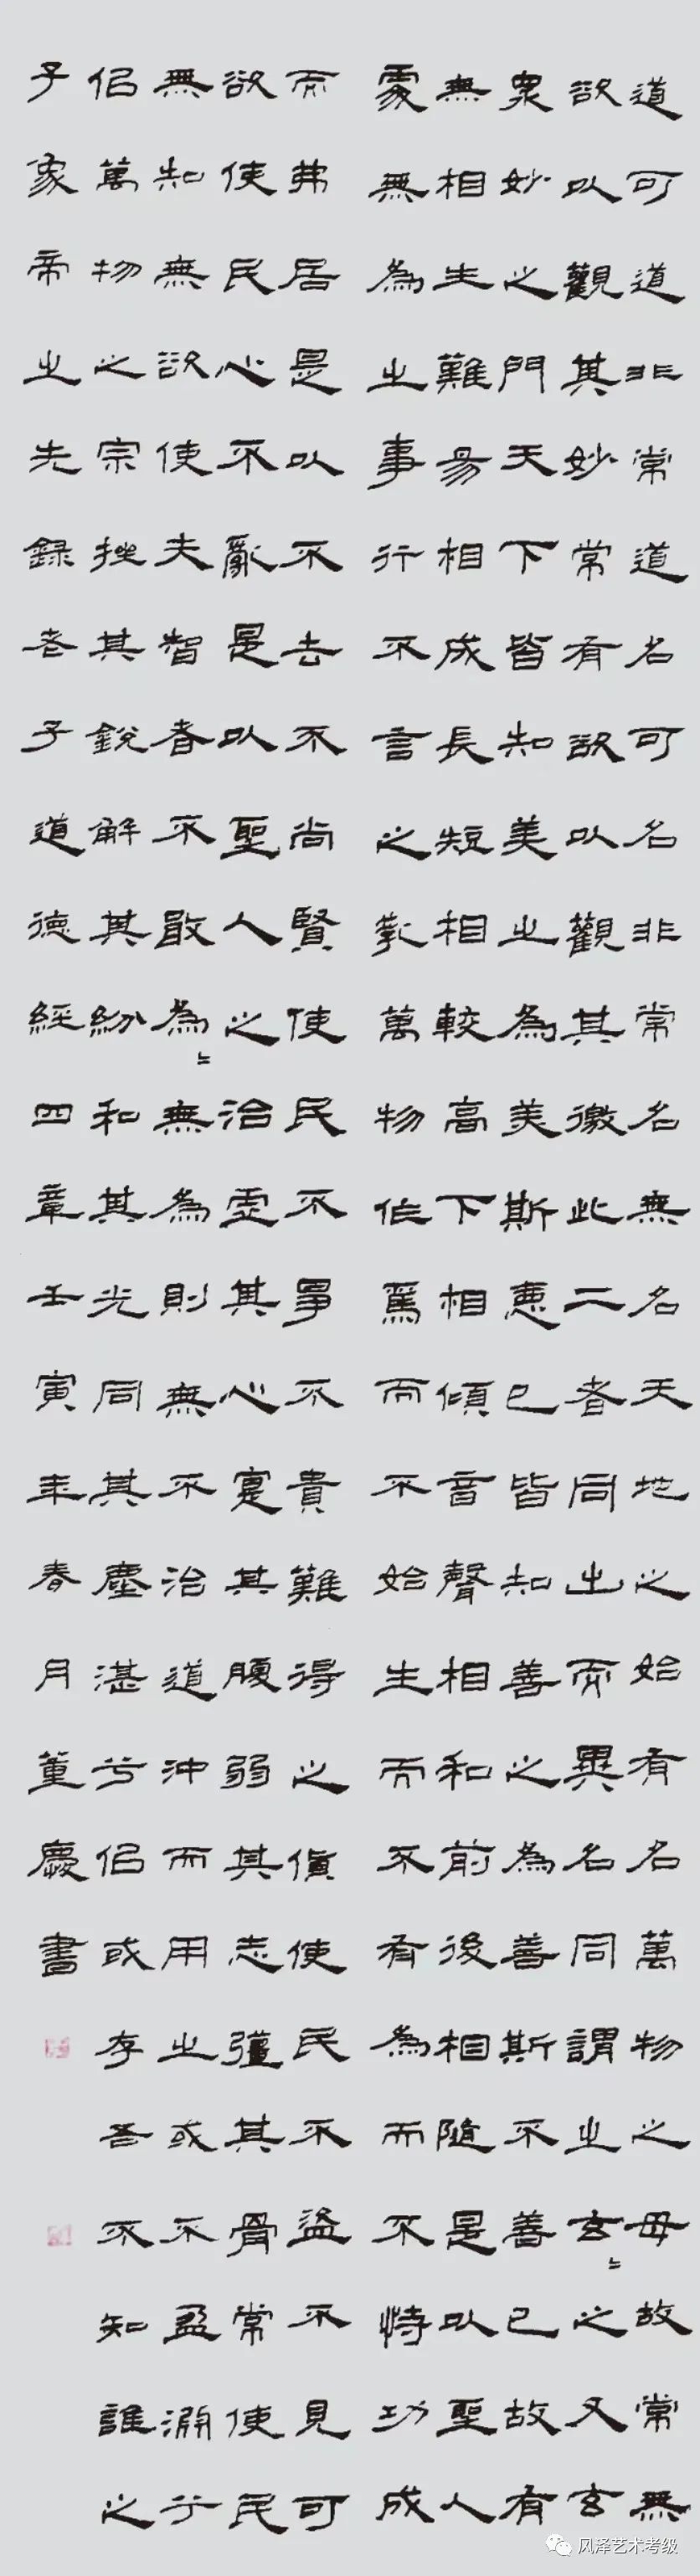 道可道非常道名可名非常名無名天地之始有名萬物之母故常無
欲以觀其妙常有欲以觀其徼此二者同出而異名同謂之玄〻之又玄
衆妙之門天下皆知美之為美斯惡已皆知善之為善斯不善已故有
無相生難易相成長短相較高下相傾音聲相和前後相隨是以聖人
處無為之事行不言之教萬物作焉而不始生而不有為而不恃功成
而弗居是以不去不尚賢使民不爭不貴難得之貨使民不盜不見可
欲使民心不亂是以聖人之治虛其心實其腹弱其志彊其骨常使民
無知無欲使夫智者不敢為〻無為則無不治道沖而用之或不盈淵乎
似萬物之宗挫其銳解其紛和其光同其塵湛兮似或存吾不知誰之
子象帝之先錄老子道德經四章壬寅年春月董慶書
风泽艺术考级